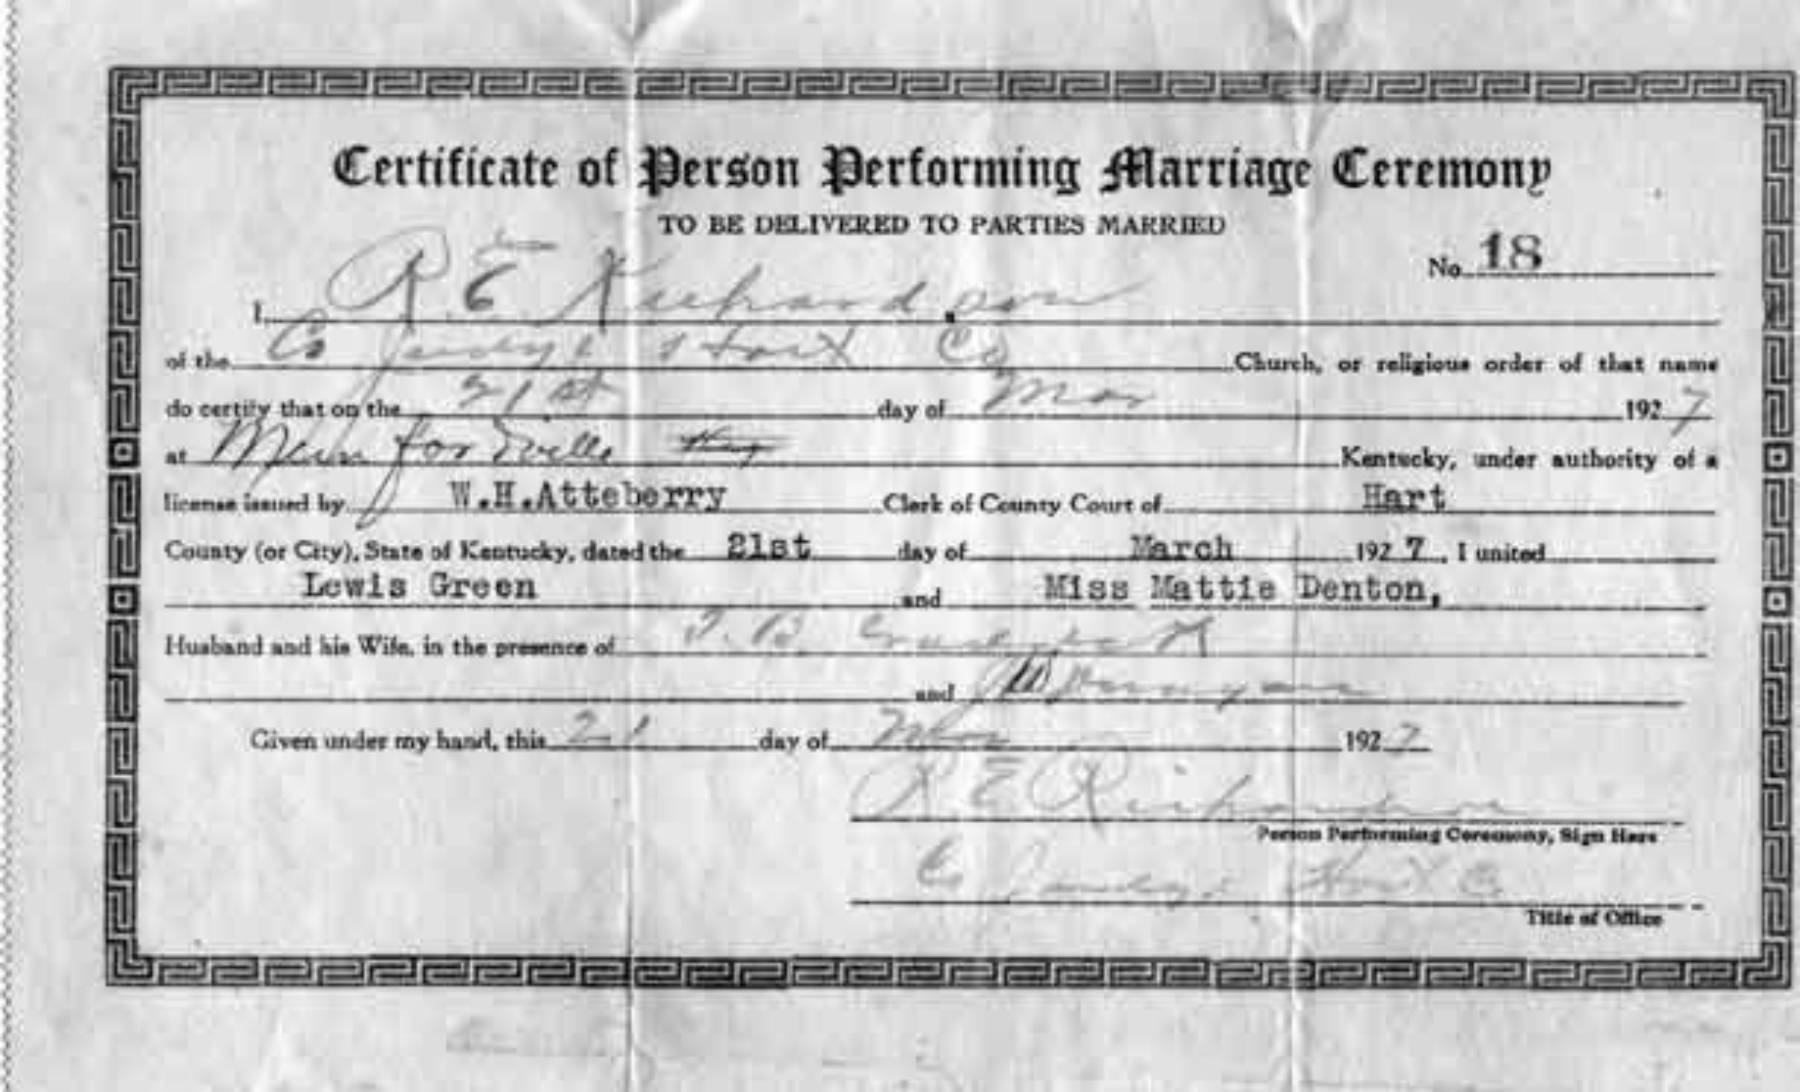 Certificate of Person Performing Marriage Ceremony
TO BE DELIVERED TO PARTIES MARRIED
No. 18
I, R. E. Richardson
of the Co Judge Hart Co Church, or religious order of that name
do certify that on the 21st day of Mar 1927
at Munfordville Ky Kentucky, under authority of a
license issued by W.H.Atteberry Clerk of County Court of Hart
County (or City), State of Kentucky, dated the 21st day of March 1927, I united
Lewis Green and Miss Mattie Denton,
Husband and his Wife, in the presence of J. B.
and
Given under my hand, this 21 day of Mar 1927
R E Richardson
Person Performing Ceremony, Sign Here
Co Judge Hart Co
Title of Office